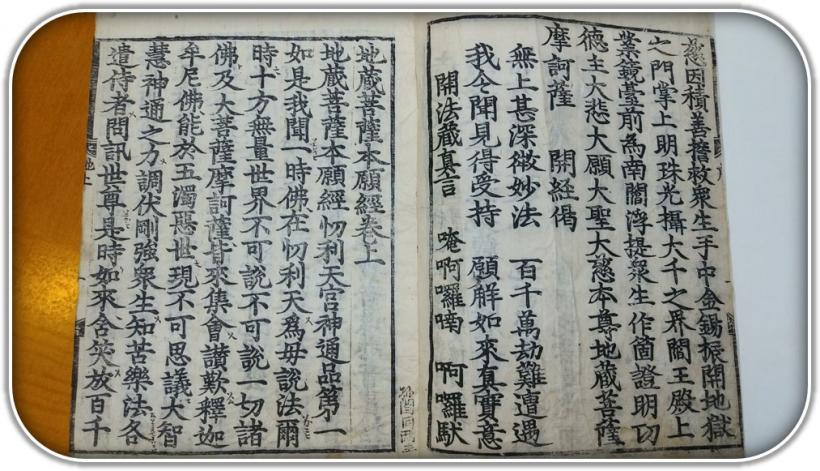 慈因積善誓救衆生手中金錫振開地獄
之門掌上明珠光攝大千之界閻王殿上
業鏡臺前為南閻浮提衆生作箇證明功
德主大悲大願大聖大慈本尊地藏菩薩
摩訶薩 開経偈
無上甚深微妙法 百千萬劫難遭遇
我今聞見得受持 願解如來真實意
開法藏真言 唵啊囉喃 啊囉馱
地藏菩薩本願經卷上
地藏菩薩本願經忉利天宮神通品第一
如是我聞一時佛在忉利天爲母說法爾
時十方無量世界不可說不可說一切諸
佛及大菩薩摩訶薩皆來集會讃歎釋迦
牟尼佛能於五濁惡世現不可思議大智
慧神通之力調伏剛強衆生知苦樂法各
遣侍者問訊世尊是時如來含笑放百千
地上